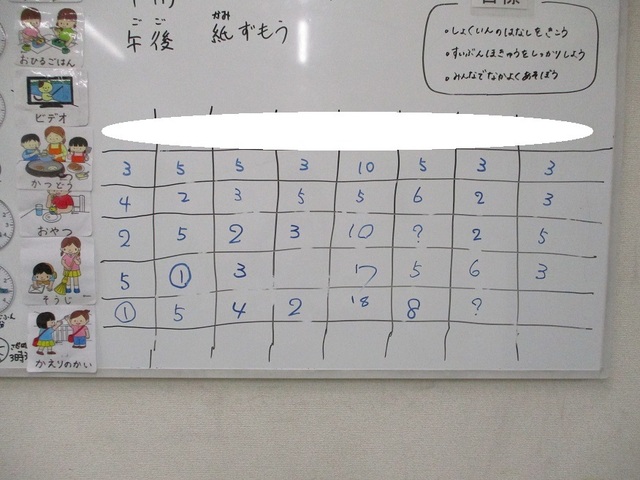 ごご かみ
午後 紙ずもう
・しょくいんのはなしをきこう
・すいぶんほきゅうをしっかりしよう
・みんなでなかよくあそぼう
おひるごはん
ビデオ
かつどう
おやつ
そうじ
かえりのかい
3 5 5 3 10 5 3 3
4 2 3 5 5 6 2 3
2 5 2 3 10 ? 2 5
5 ① 3 17 5 6 3
① 5 4 2 18 8 ?